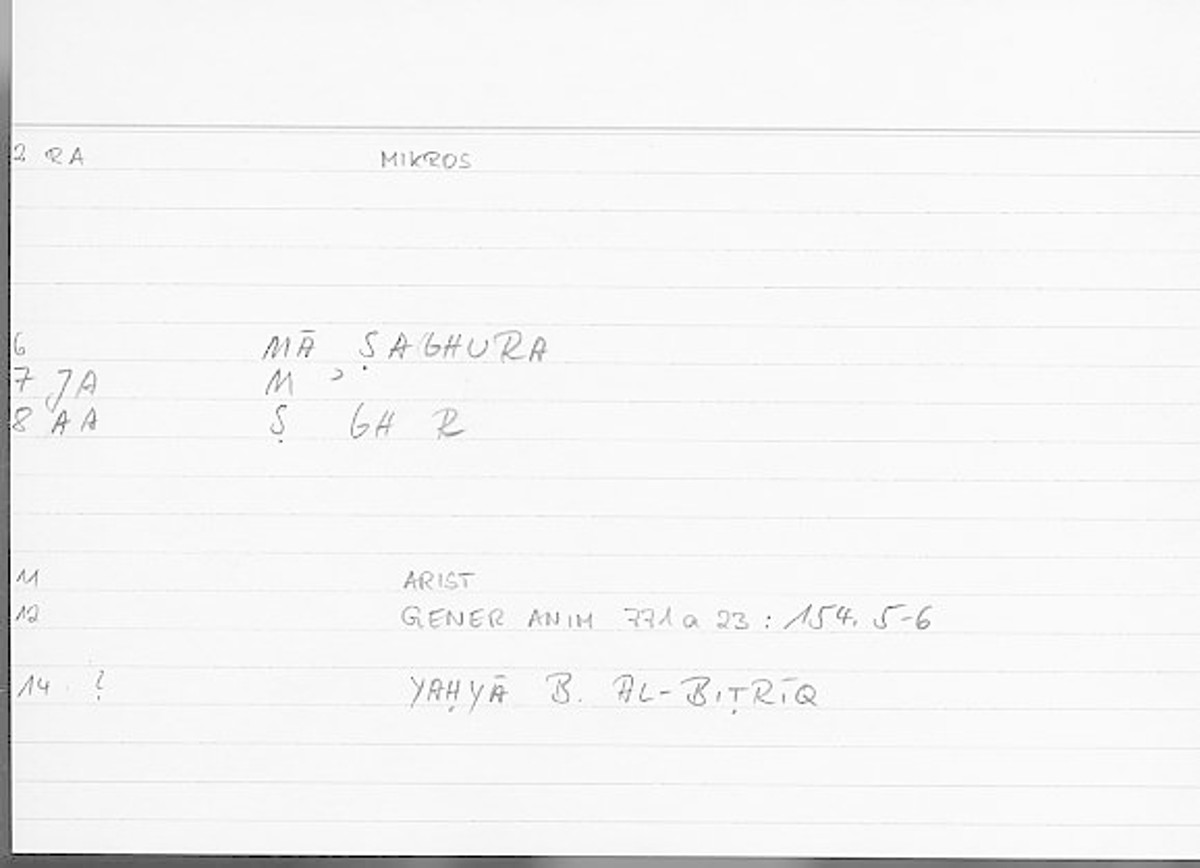 2 RA MIKROS
6 MĀ ṢAGHURA
7 JA M ʾ
8 AA Ṣ GH R
11 ARIST
12 GENER ANIM 771a 23 : 154, 5-6
14 ? YAḤYĀ B. AL-BIṬRĪQ